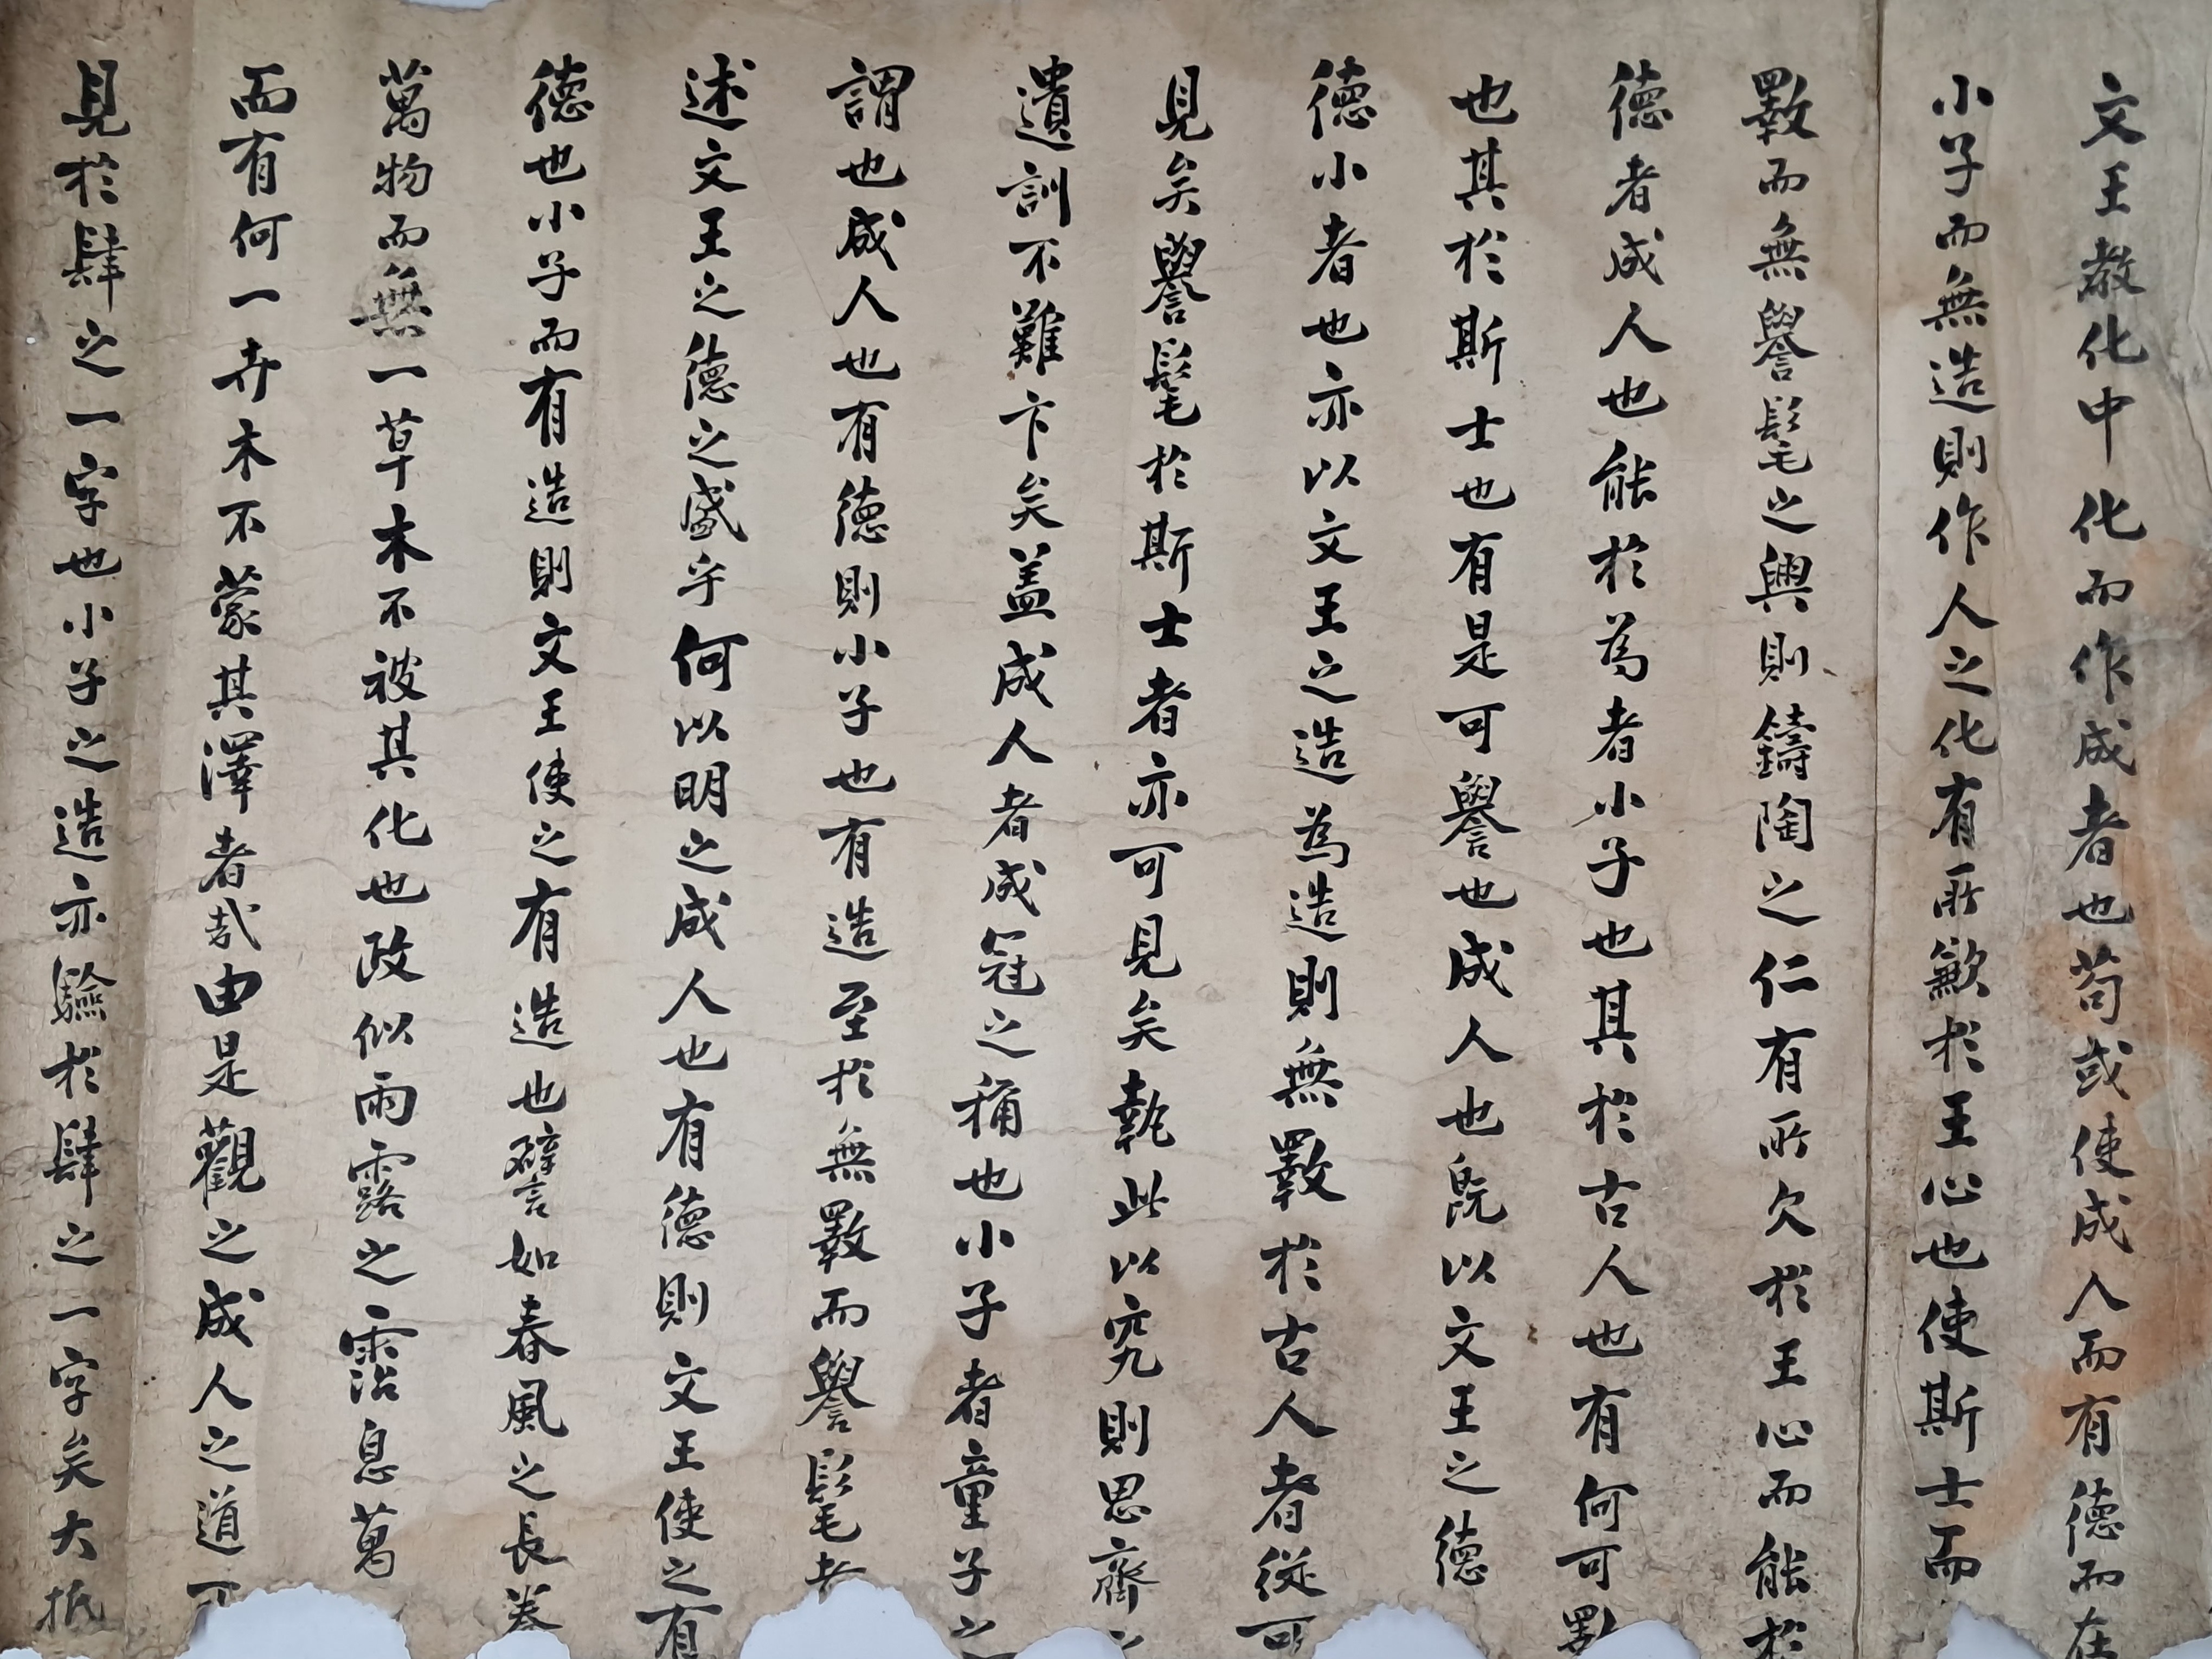 文王教化中化而作成者也苟或使成人而有德而在
小子而無造則作人之化有所歉於王心也使斯士而
斁而無譽髦之興則鑄陶之仁有所欠於王心而能於
德者成人也能於為者小子也其於古人也有何可斁
也其於斯士也有是可譽也成人也既以文王之德
德小者也亦以文王之造為造則無斁於古人者從可
見矣譽髦於斯士者亦可見矣執此以究則思齊之
遺訓不難卞矣盖成人者成冠之稱也小子者童子之
謂也成人也有德則小子也有造至於無斁而譽髦者
述文王之德之盛乎何以明之成人也有德則文王使之有
德也小子而有造則文王使之有造也譬如春風之長養
萬物而無一草木不被其化也政似雨露之霑息萬
而有何一卉木不蒙其澤者哉由是觀之成人之道可
見於肆之一字也小子之造亦驗於肆之一字矣大抵